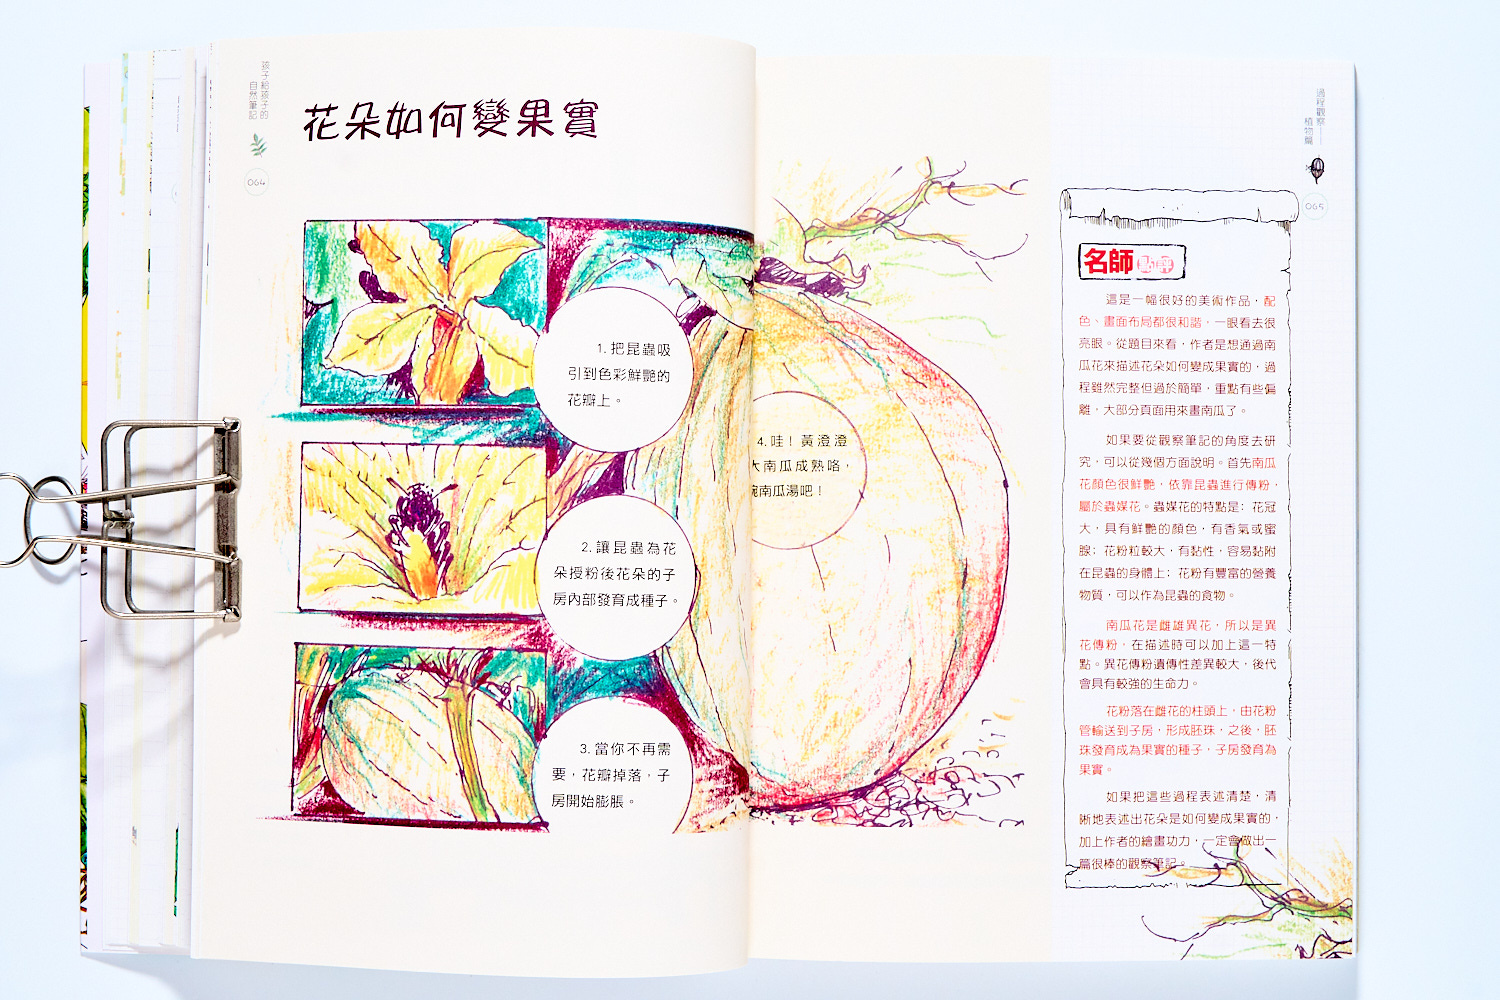 孩子給孩子的
自然筆記
064
花朵如何變果實
1.把昆蟲吸
引到色彩鮮艷的
花瓣上。
2.讓昆蟲為花
朵授粉後花朵的子
房內部發育成種子。
3.當你不再需
要，花瓣掉落，子
房開始膨脹。
4.哇！黃澄澄
大南瓜成熟咯，
碗南瓜湯吧！
過程觀察——
植物篇
065
名師點評
這是一幅很好的美術作品，配
色、畫面布局都很和諧，一眼看去很
亮眼。從題目來看，作者是想通過南
瓜花來描述花朵如何變成果實的，過
程雖然完整但過於簡單，重點有些偏
離，大部分頁面用來畫南瓜了。
如果要從觀察筆記的角度去研
究，可以從幾個方面說明。首先南瓜
花顏色很鮮艷，依靠昆蟲進行傳粉，
屬於蟲媒花。蟲媒花的特點是：花冠
大，具有鮮艷的顏色，有香氣或蜜
腺；花粉粒較大，有黏性，容易黏附
在昆蟲的身體上；花粉有豐富的營養
物質，可以作為昆蟲的食物。
南瓜花是雌雄異花，所以是異
花傳粉，在描述時可以加上這一特
點。異花傳粉遺傳性差異較大，後代
會具有較強的生命力。
花粉落在雌花的柱頭上，由花粉
管輸送到子房，形成胚珠，之後，胚
珠發育成為果實的種子，子房發育為
果實。
如果把這些過程表述清楚，清
晰地表述出花朵是如何變成果實的，
加上作者的繪畫功力，一定會做出一
篇很棒的觀察筆記。